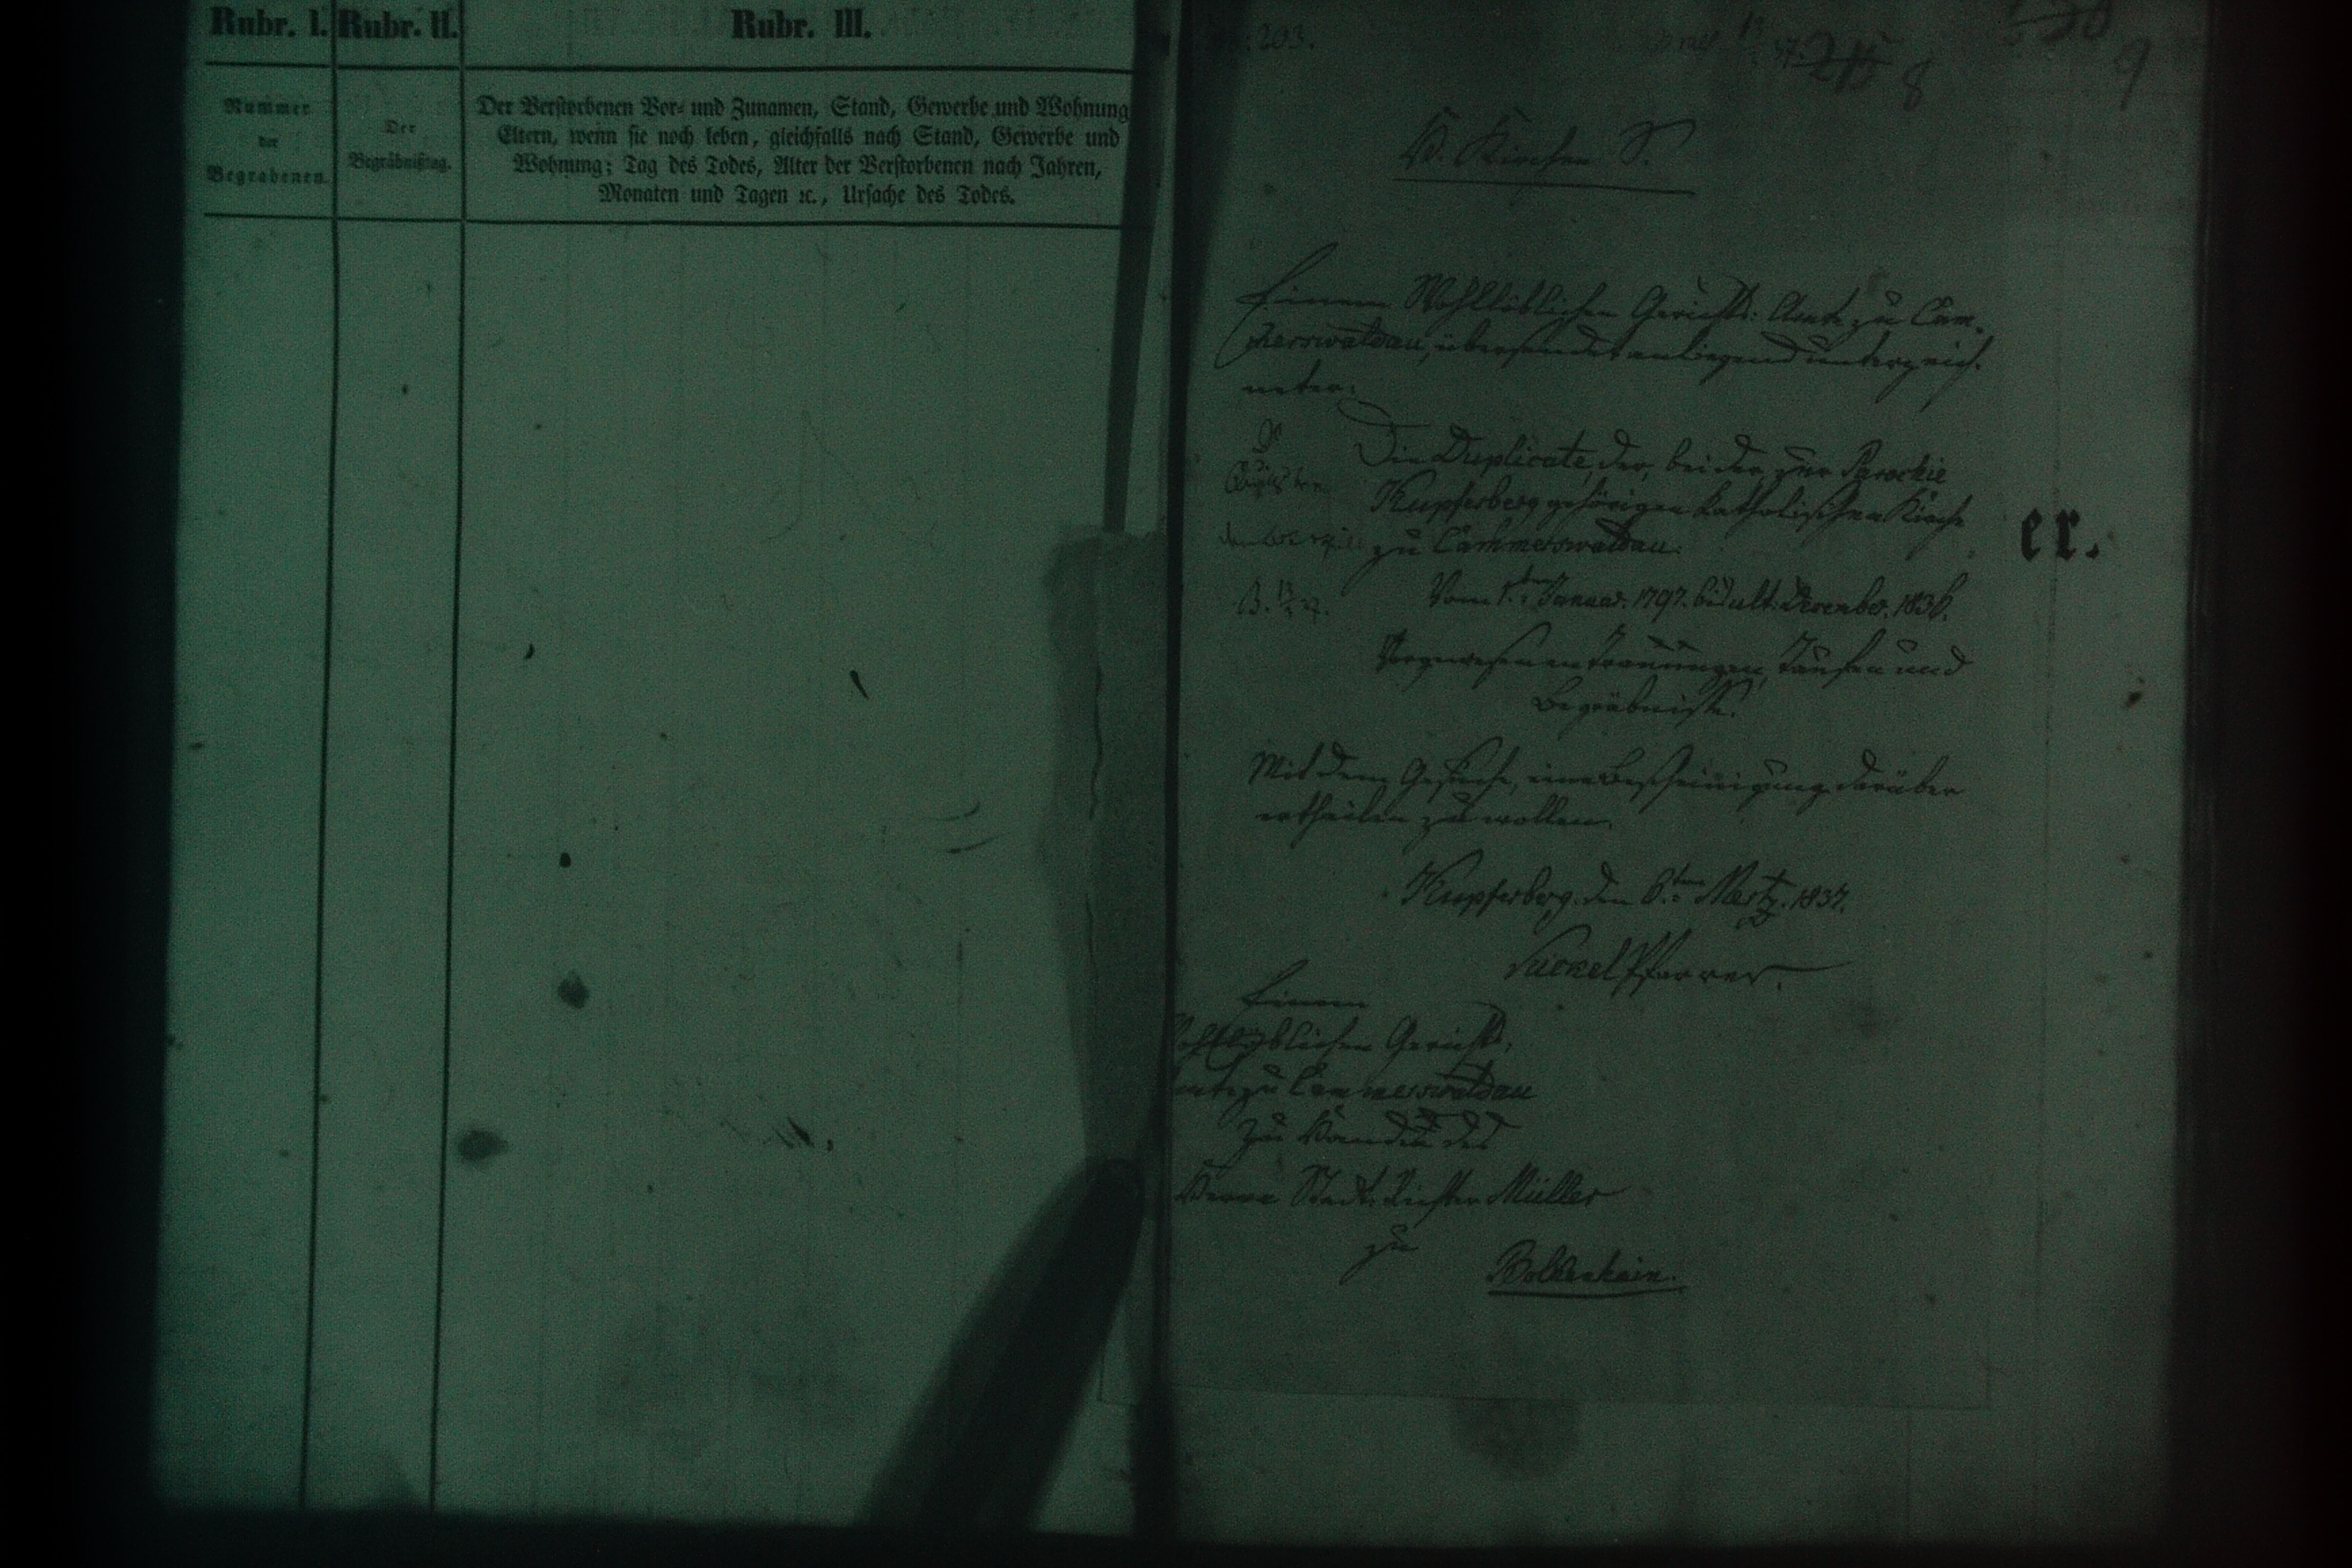 Rubr. I. Rubr. II. Rubr. III.
Nummer
der
Begrabenen.
Der
Begräbnißtag.
Der Verstorbenen Vor- und Zunamen, Stand, Gewerbe und Wohnung
Eltern, wenn sie noch leben, gleichfalls nach Stand, Gewerbe und
Wohnung; Tag des Todes, Alter der Verstorbenen nach Jahren,
Monaten und Tagen ꝛc., Ursache des Todes.
203.
8
9
K. Kirchen S.
Einem Wohllöblichen Gerichts: Amte zu Cam-
merswaldau, übersendet anliegend unterzeich-
neter:
Die Duplicate, der, bei der zur Parochie
Kupferberg gehörigen katholischen Kirche
zu Cammerswaldau.
er.
Vom 1.ten Januar. 1797. bis ult: December. 1836.
Vorgewesenen Trauungen, Taufen und
Begräbnisse.
Mit dem Gesuche, eine Bescheinigung darüber
ertheilen zu wollen.
Kupferberg. den 6.ten Mertz. 1837.
Pfarrer.
Einem
Wohllöblichen Gerichts,
Amte zu Cammerswaldau
zu Handen des
Herrn Stadt: Richter Müller
zu
Bolkenhain.